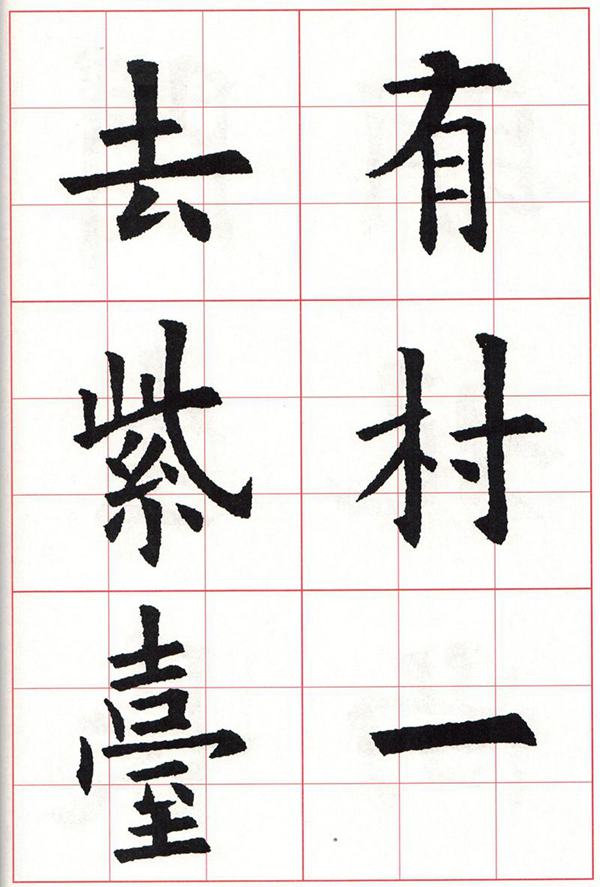 有村一
去紫臺